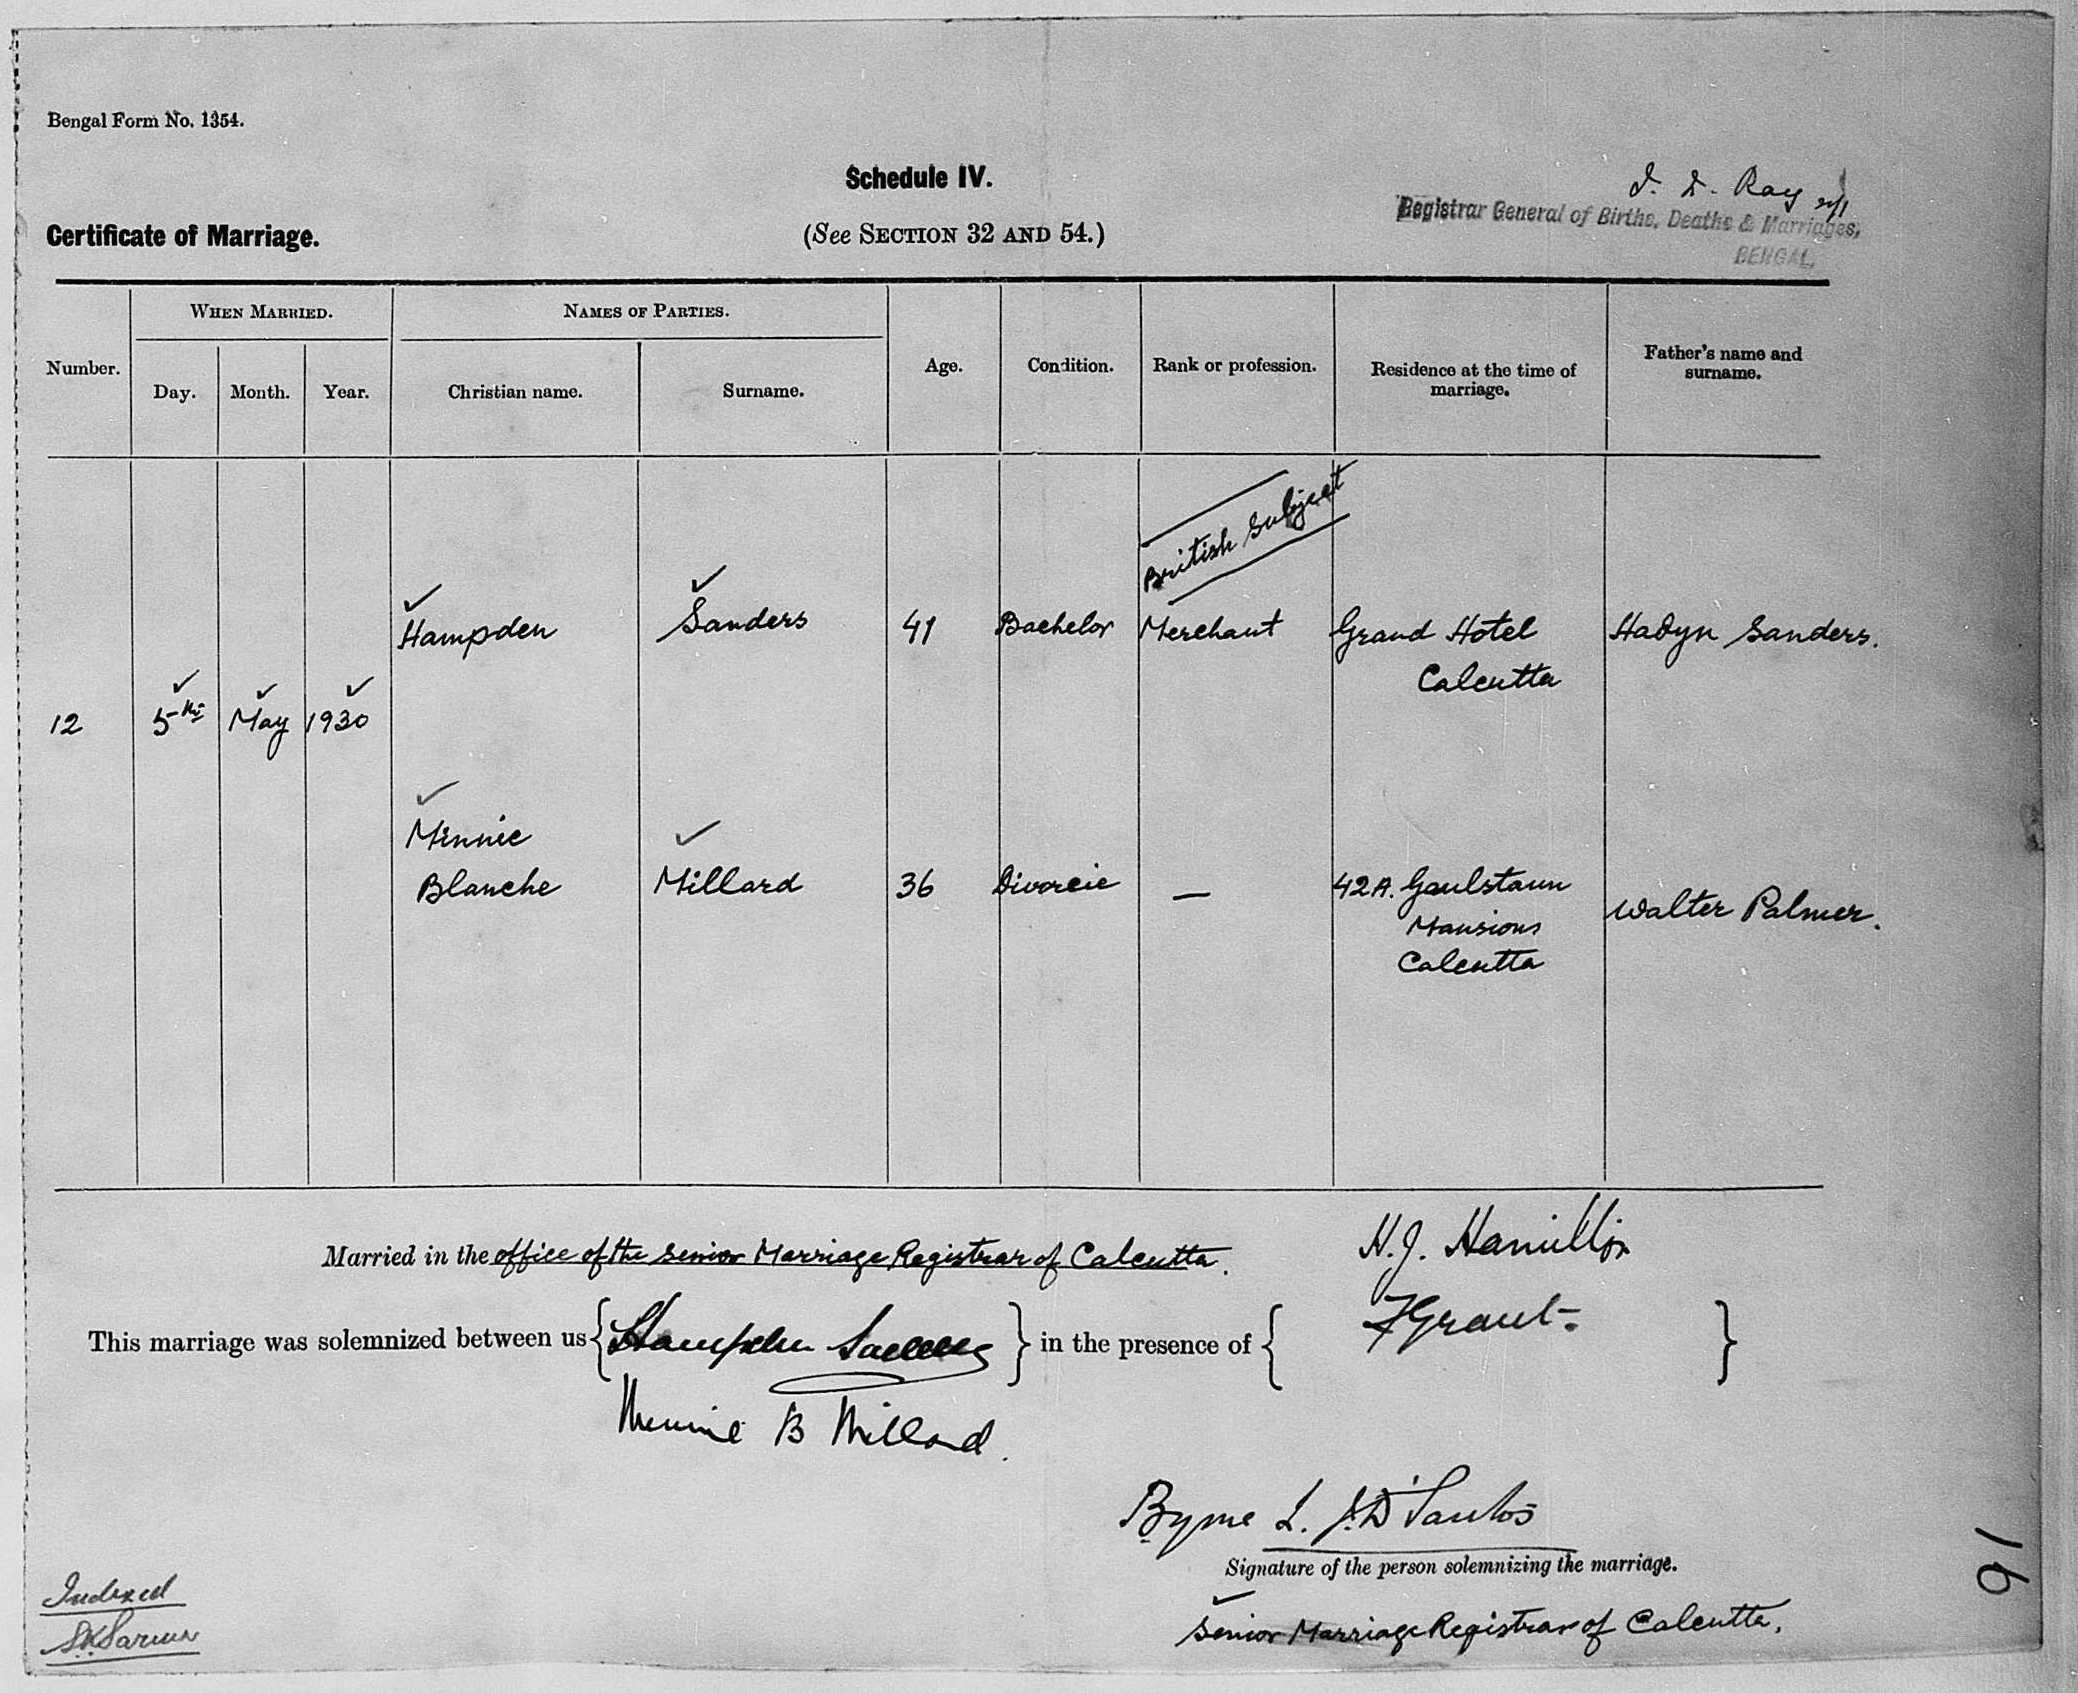 Bengal Form No. 1354.
Schedule IV.
Certificate of Marriage.
(See SECTION 32 AND 54.)
Ray
Registrar General of Births, Deaths & Marriages,
BENGAL.
Number.
WHEN MARRIED.
Day.
Month.
Year.
NAMES OF PARTIES.
Christian name.
Surname.
Age.
Condition.
Rank or profession.
Residence at the time of
marriage.
Father's name and
surname.
British Subject
Hampden Sanders 41 Bachelor Merchant Grand Hotel Hadyn Sanders.
Calcutta
12 5th May 1930
Minnie
Blanche Millard 36 Divorcie — 42A. Gaulstaun Walter Palmer.
Mansions
Calcutta
Married in the office of the Senior Marriage Registrar of Calcutta.
H. J. Hamilton
This marriage was solemnized between us { Hampden Sanders } in the presence of { F Grant. }
Minnie B Millard.
Byrne L. J. D'Santos
Signature of the person solemnizing the marriage.
Senior Marriage Registrar of Calcutta.
Indexed
16